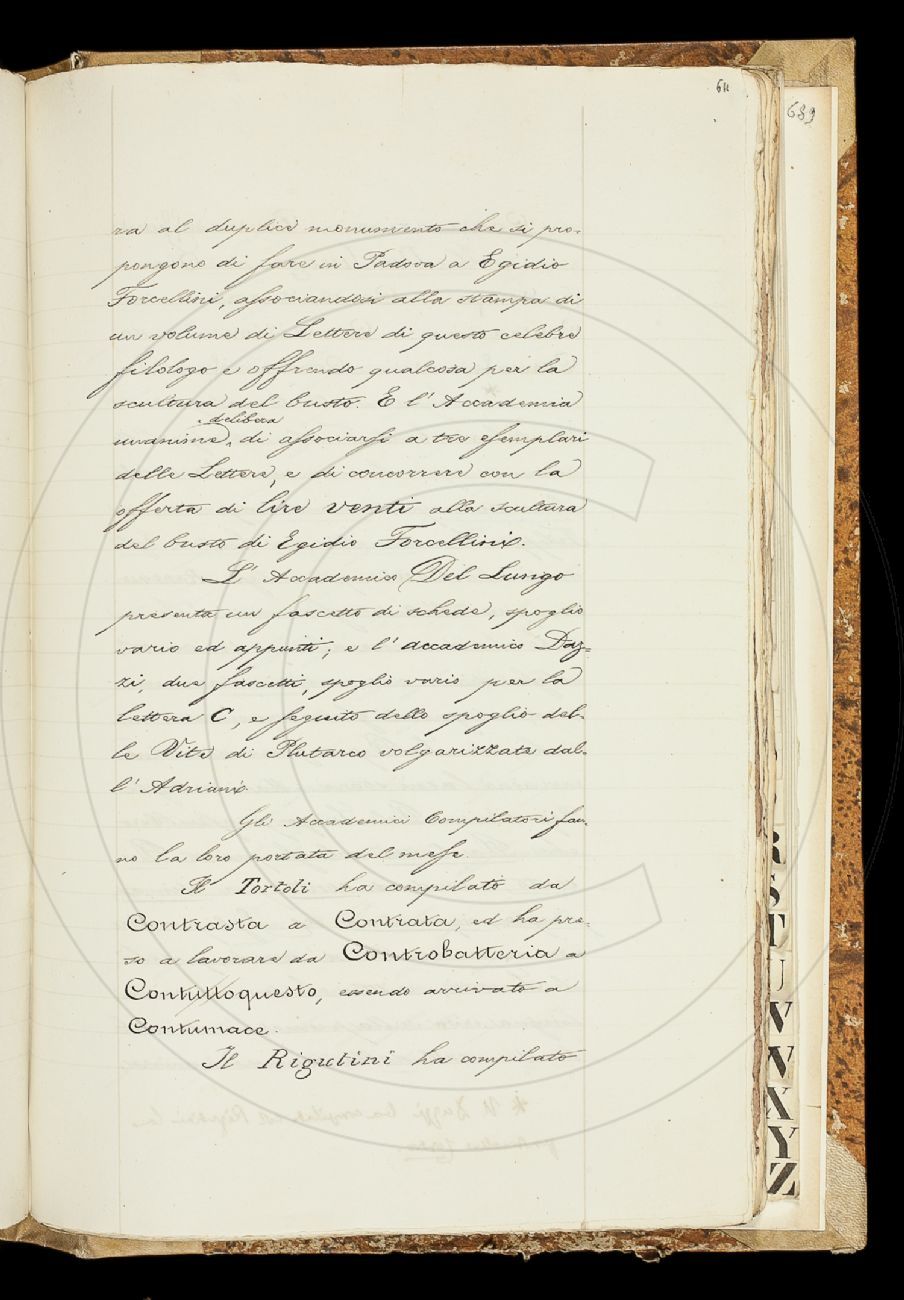 611
689
ra al duplice monumento che si pro-
pongono di fare in Padova a Egidio
Forcellini, associandosi alla stampa di
un volume di Lettere di questo celebre
filologo e offrendo qualcosa per la
scultura del busto. E l'Accademia
delibera
unanime di associarsi a tre esemplari
delle Lettere, e di concorrere con la
offerta di lire venti alla scultura
del busto di Egidio Forcellini.
L'Accademico Del Lungo
presenta un fascetto di schede, spoglio
vario ed appunti; e l'accademico Daz=
zi, due fascetti, spoglio vario per la
lettera C, e seguito dello spoglio del-
le Vite di Plutarco volgarizzate dal-
l'Adriani.
Gli Accademici Compilatori fan-
no la loro portata del mese.
Il Tortoli ha compilato da
Contrasta a Contrata, ed ha pre-
so a lavorare da Controbatteria a
Contuttoquesto, essendo arrivato a
Contumace.
Il Rigutini ha compilato
R
S
T
U
V
W
X
Y
Z